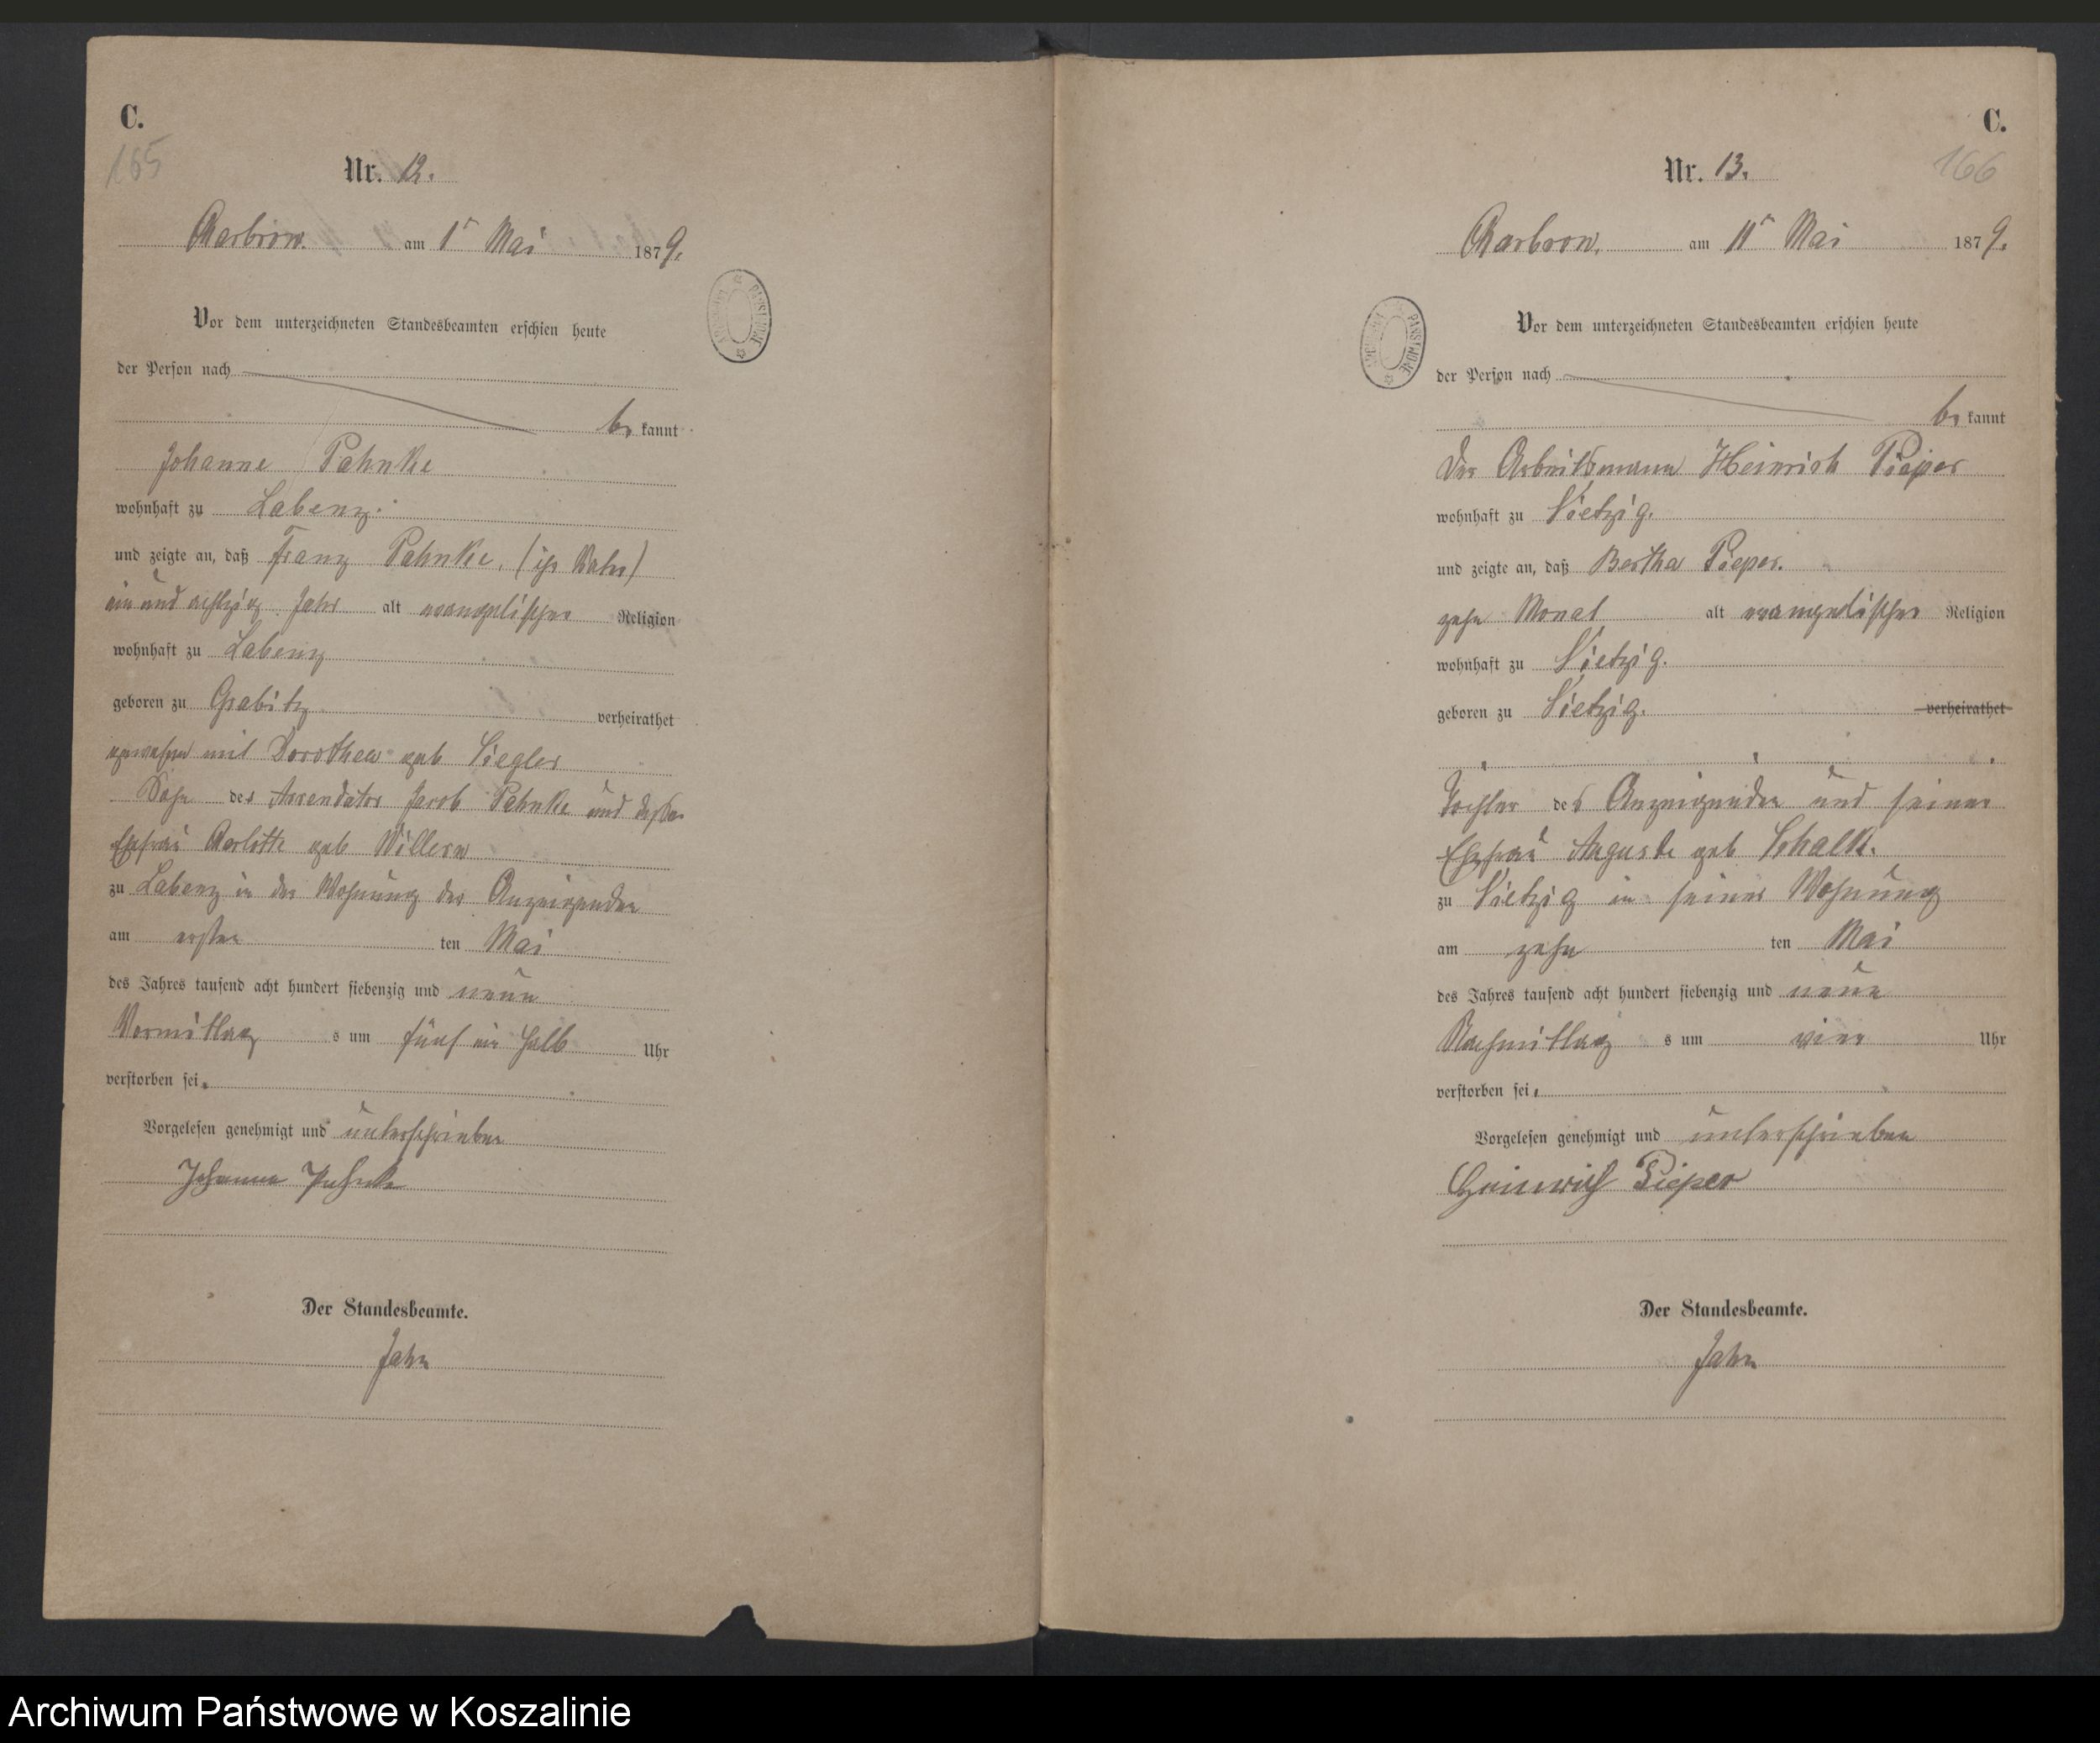 C.
165
Nr. 12.
Charbrow. am 1ᵗ Mai 1879.
Vor dem unterzeichneten Standesbeamten erschien heute
der Person nach
be kannt
Johanne Pahnke
wohnhaft zu Labenz.
und zeigte an, daß Franz Pahnke, (ihr Vater)
ein und achtzig Jahr alt evangelischer Religion
wohnhaft zu Labenz
geboren zu Grabitz verheirathet
gewesen mit Dorothea geb Siegler
Sohn des Arrendator Jacob Pahnke und dessen
Ehefrau Charlotte geb Willern
zu Labenz in der Wohnung der Anzeigenden
am ersten ten Mai
des Jahres tausend acht hundert siebenzig und neun
Vormittag s um fünf ein halb Uhr
verstorben sei.
Vorgelesen genehmigt und unterschrieben
Johanna Pahnke
Der Standesbeamte.
Jahn
C.
166
Nr. 13.
Charbrow. am 11ᵗ Mai 1879.
Vor dem unterzeichneten Standesbeamten erschien heute
der Person nach
be kannt
Der Arbeitsmann Heinrich Pieper
wohnhaft zu Vietzig.
und zeigte an, daß Bertha Pieper.
zehn Monat alt evangelischer Religion
wohnhaft zu Vietzig.
geboren zu Vietzig. verheirathet
Tochter des Anzeigenden und seiner
Ehefrau Auguste geb Schalk.
zu Vietzig in seiner Wohnung
am zehn ten Mai
des Jahres tausend acht hundert siebenzig und neun
Nachmittag s um vier Uhr
verstorben sei.
Vorgelesen genehmigt und unterschrieben
Heinrich Pieper
Der Standesbeamte.
Jahn
Archiwum Państwowe w Koszalinie